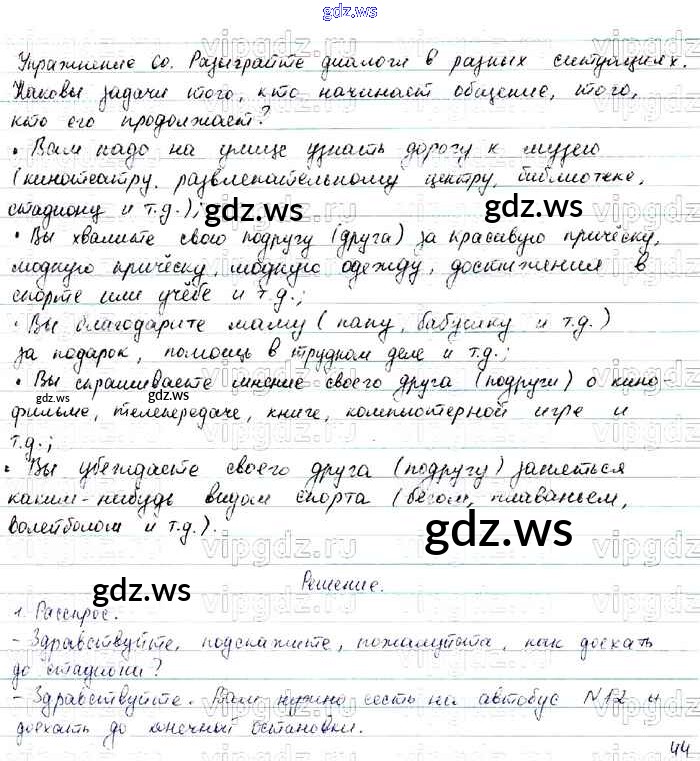 gdz.ws
Упражнение 60. Разыграйте диалоги в разных ситуациях.
Каковы задачи того, кто начинает общение, того,
кто его продолжает?
• Вам надо на улице узнать дорогу к музею
(кинотеатру, развлекательному центру, библиотеке,
стадиону и т.д.);
• Вы хвалите свою подругу (друга) за красивую причёску,
модную причёску, модную одежду, достижения в
спорте или учёбе и т.д.;
• Вы благодарите маму (папу, бабушку и т.д.)
за подарок, помощь в трудном деле и т.д.;
• Вы спрашиваете мнение своего друга (подруги) о кино-
фильме, телепередаче, книге, компьютерной игре и
т.д.;
• Вы убеждаете своего друга (подругу) заняться
каким-нибудь видом спорта (бегом, плаваньем,
волейболом и т.д.).
Решение.
1. Расспрос.
- Здравствуйте, подскажите, пожалуйста, как доехать
до стадиона?
- Здравствуйте. Вам нужно сесть на автобус N12 и
доехать до конечной остановки.
44